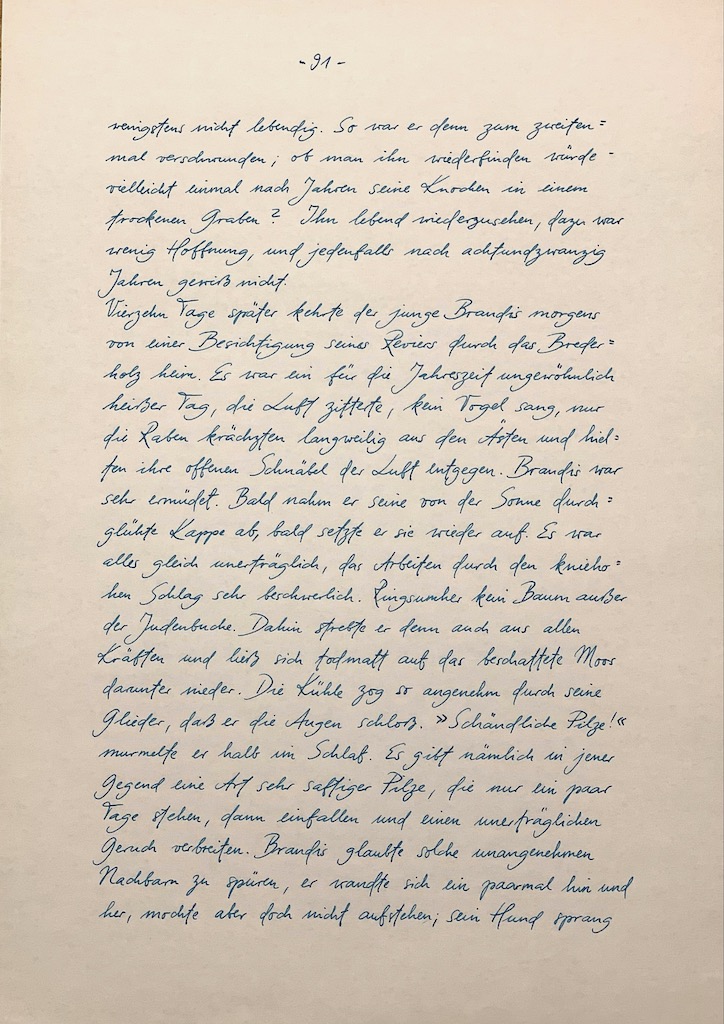 - 91 -
wenigstens nicht lebendig. So war er denn zum zweiten=
mal verschwunden; ob man ihn wiederfinden würde -
vielleicht einmal nach Jahren seine Knochen in einem
trockenen Graben? Ihn lebend wiederzusehen, dazu war
wenig Hoffnung, und jedenfalls nach achtundzwanzig
Jahren gewiß nicht.
Vierzehn Tage später kehrte der junge Brandis morgens
von einer Besichtigung seines Reviers durch das Breder=
holz heim. Es war ein für die Jahreszeit ungewöhnlich
heißer Tag, die Luft zitterte, kein Vogel sang, nur
die Raben krächzten langweilig aus den Ästen und hiel=
ten ihre offenen Schnäbel der Luft entgegen. Brandis war
sehr ermüdet. Bald nahm er seine von der Sonne durch=
glühte Kappe ab, bald setzte er sie wieder auf. Es war
alles gleich unerträglich, das Arbeiten durch den knieho=
hen Schlag sehr beschwerlich. Ringsumher kein Baum außer
der Judenbuche. Dahin strebte er denn auch aus allen
Kräften und ließ sich todmatt auf das beschattete Moos
darunter nieder. Die Kühle zog so angenehm durch seine
Glieder, daß er die Augen schloß. »Schändliche Pilze!«
murmelte er halb im Schlaf. Es gibt nämlich in jener
Gegend eine Art sehr saftiger Pilze, die nur ein paar
Tage stehen, dann einfallen und einen unerträglichen
Geruch verbreiten. Brandis glaubte solche unangenehmen
Nachbarn zu spüren, er wandte sich ein paarmal hin und
her, mochte aber doch nicht aufstehen; sein Hund sprang